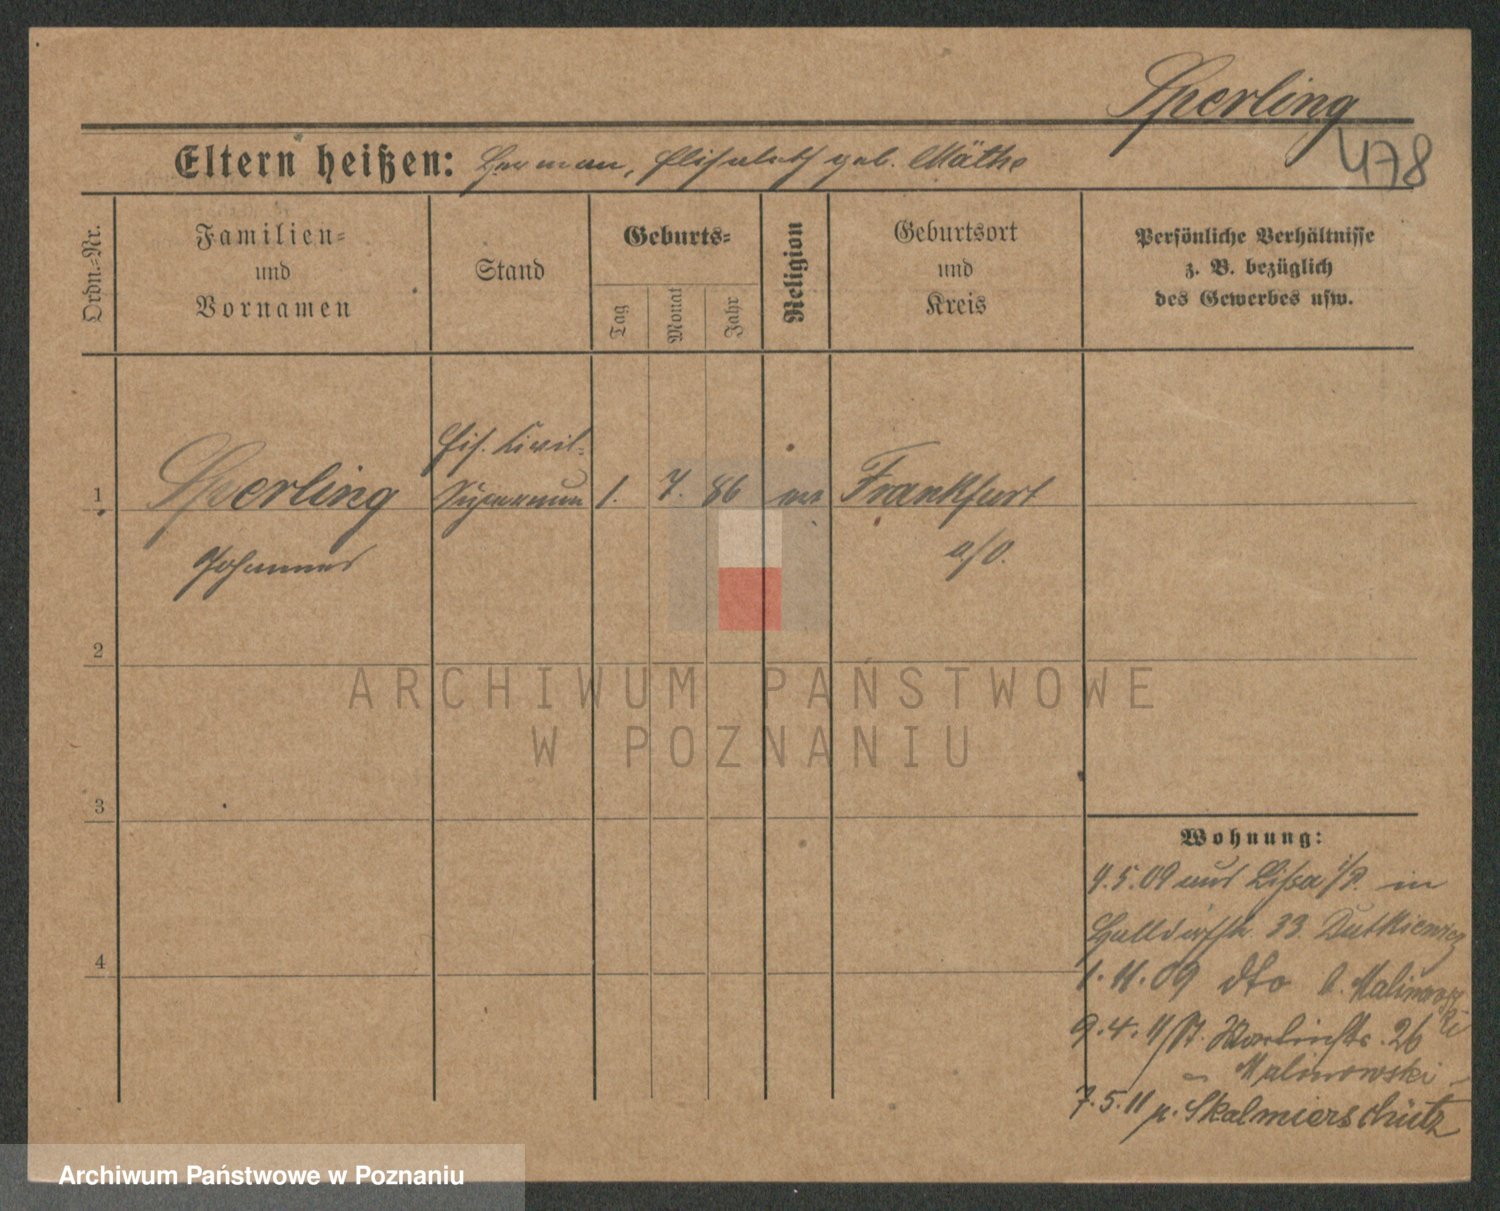 Sperling
478
Eltern heißen: Herman, Elisabeth geb. Mäthe
Ordn.=Nr.
Familien=
und
Vornamen
Stand
Geburts=
Tag
Monat
Jahr
Religion
Geburtsort
und
Kreis
Persönliche Verhältnisse
z. B. bezüglich
des Gewerbes usw.
Eis. Civil-
1 Sperling Supernum 1. 7. 86 Frankfurt
Johannes a/O.
2
3
4
ARCHIWUM PAŃSTWOWE
W POZNANIU
Wohnung:
4.5.09 aus Lissa i/P. in
33. Dutkiewicz
1.11.09 dto b. Malinowski
9.4.11 St. Martinstr. 26
- Malinowski -
7.5.11 n. Skalmierschütz
Archiwum Państwowe w Poznaniu